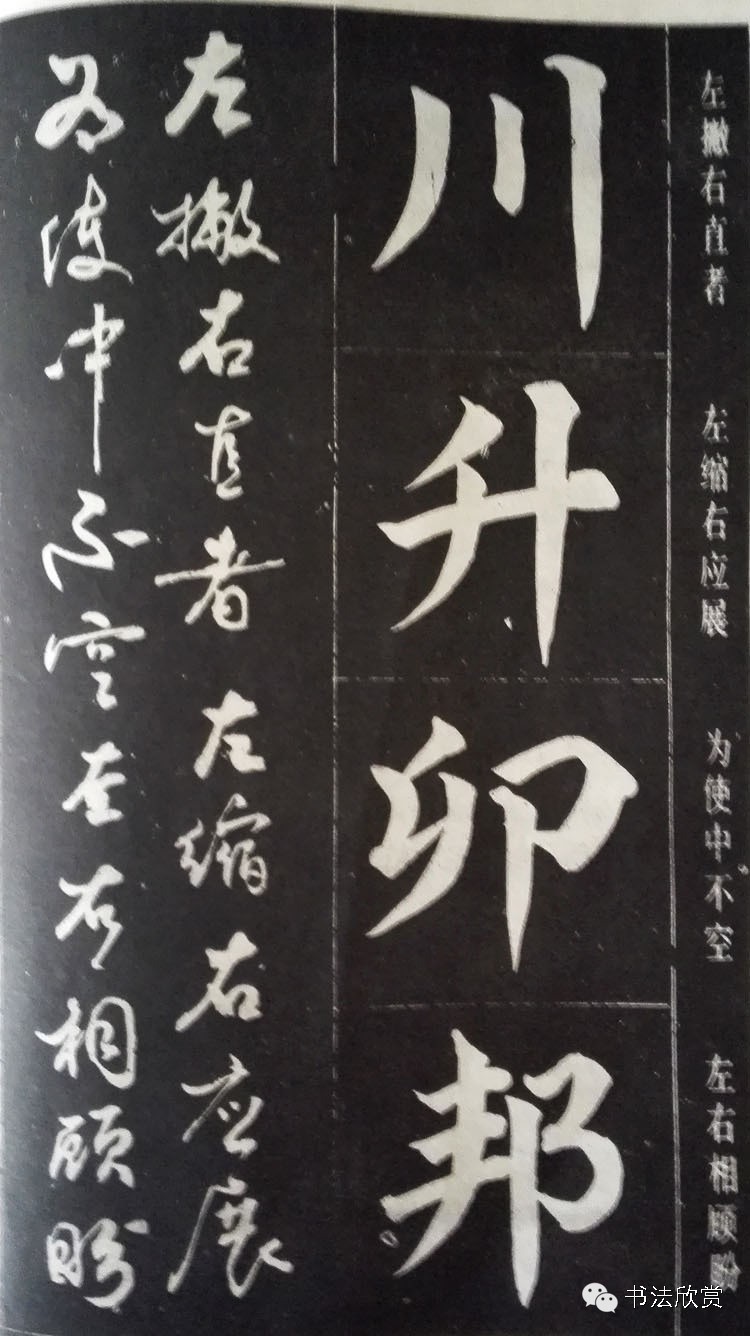 左撇右直者 左缩右应展 为使中不空 左右相顾盼
川升卯邦
左撇右直者左缩右应展
为使中不空左右相顾盼
书法欣赏